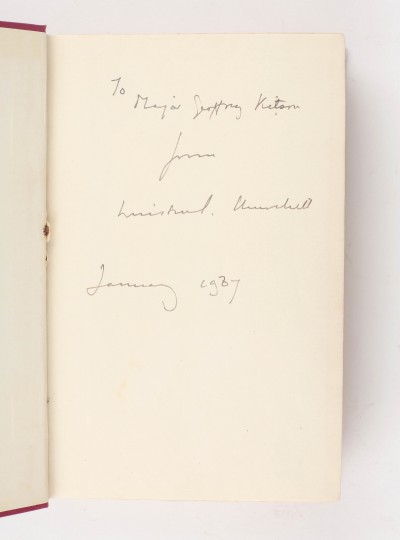 To
Major Geoffrey Kitson
from
Winston S. Churchill
January 1937